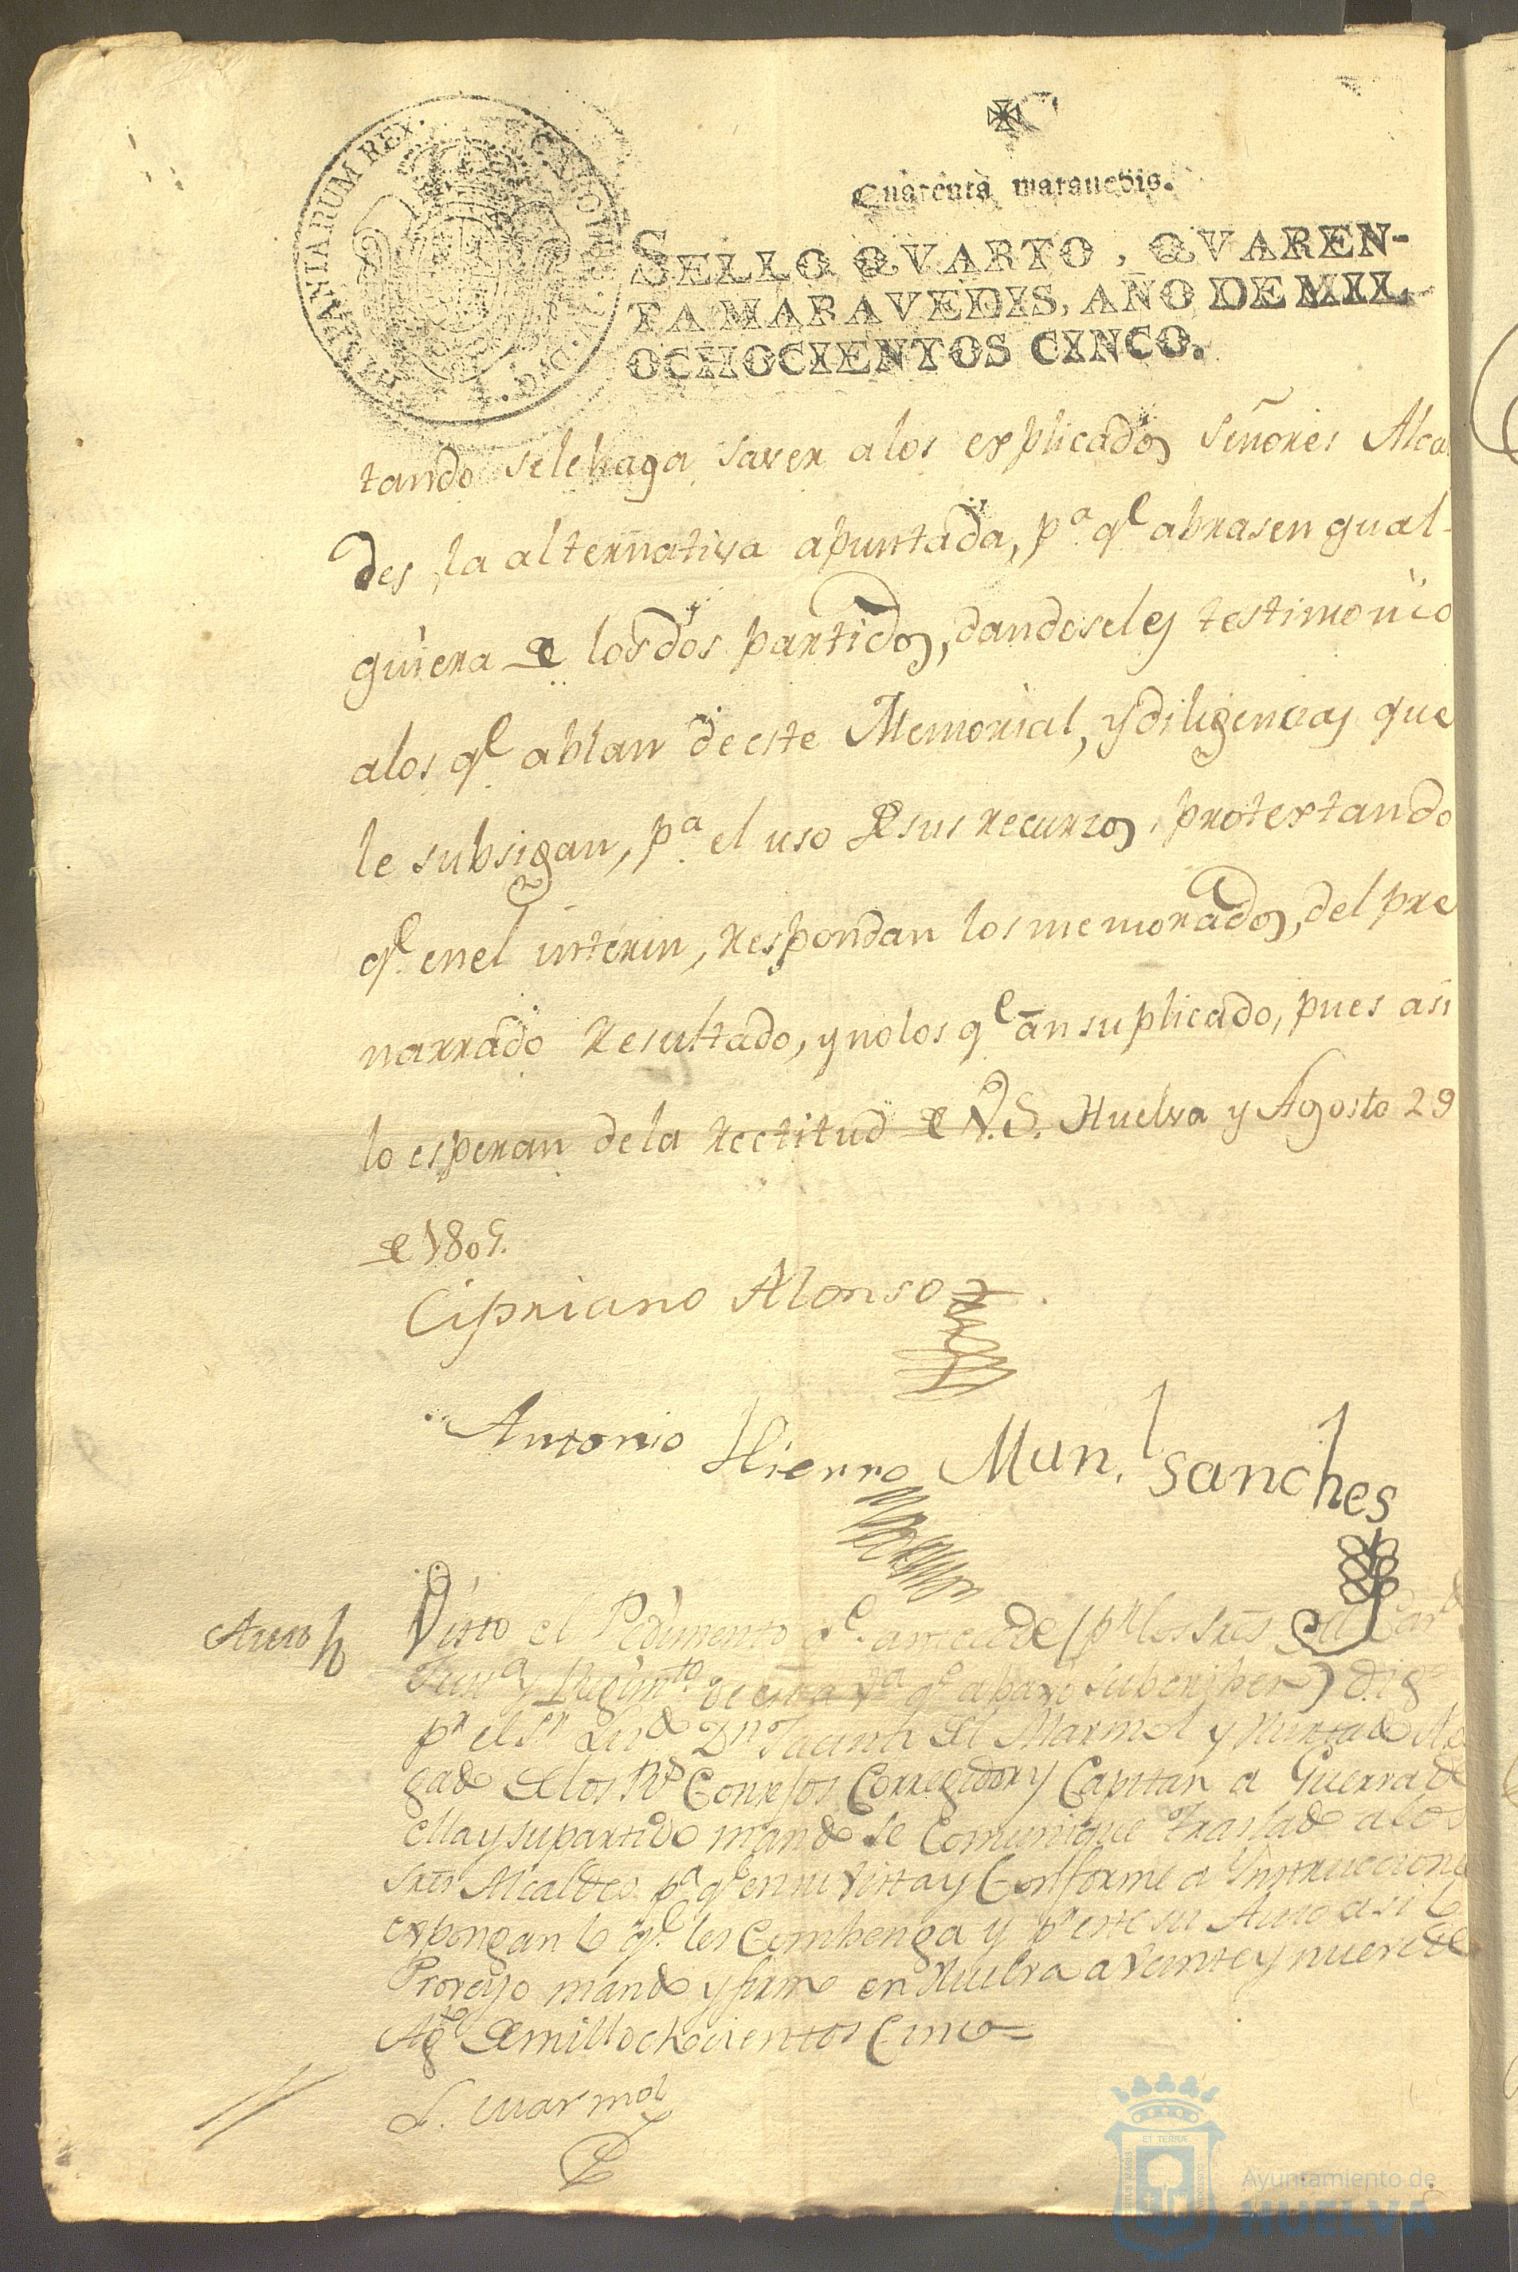 HISPANIARUM REX. CAROLUS IV. D. G.
Quarenta marauedis.
SELLO QVARTO, QVAREN-
TA MARAVEDIS, AÑO DE MIL
OCHOCIENTOS CINCO.
tando selehaga saver alos explicados Señores Alcal
des, la alternativa apuntada, pª qe abrasen qual-
quiera de losdos partidos, dandoseles testimonio
alos qe ablan deeste Memorial, y diligencias que
le subsigan, pª el uso de sus recurzos, protextando
qe enel interin, respondan los memorados, del pre
narrado resultado, y nolos qe an suplicado, pues asi
lo esperan dela rectitud de V.S. Huelva y Agosto 29
de 1805.
Cipriano Alonso
Antonio Hierro Man.l Sanches
Auto
Visto el Pedimento qe antecede (pr los Sres del
Jura y Regimto de esta va qe abaxo subcriben) dijo
pr el Sr Licdo Dn Jacinto del Marmol y Hurtado Abo
gado de los Rs Consejos Corregidor y Capitan a Guerra de
ella y su partido mando se Comunique traslado a los
Sres Alcaldes pa qe en su vista y Conforme a Ynstrucciones
expongan lo qe les Combenga y pr este su Auto asi lo
Proveyo mando y firmo en Huelva a veinte y nueve de
Agto de mill ochocientos Cinco=
L. Marmol
ET TERRÆ
Ayuntamiento de
HUELVA